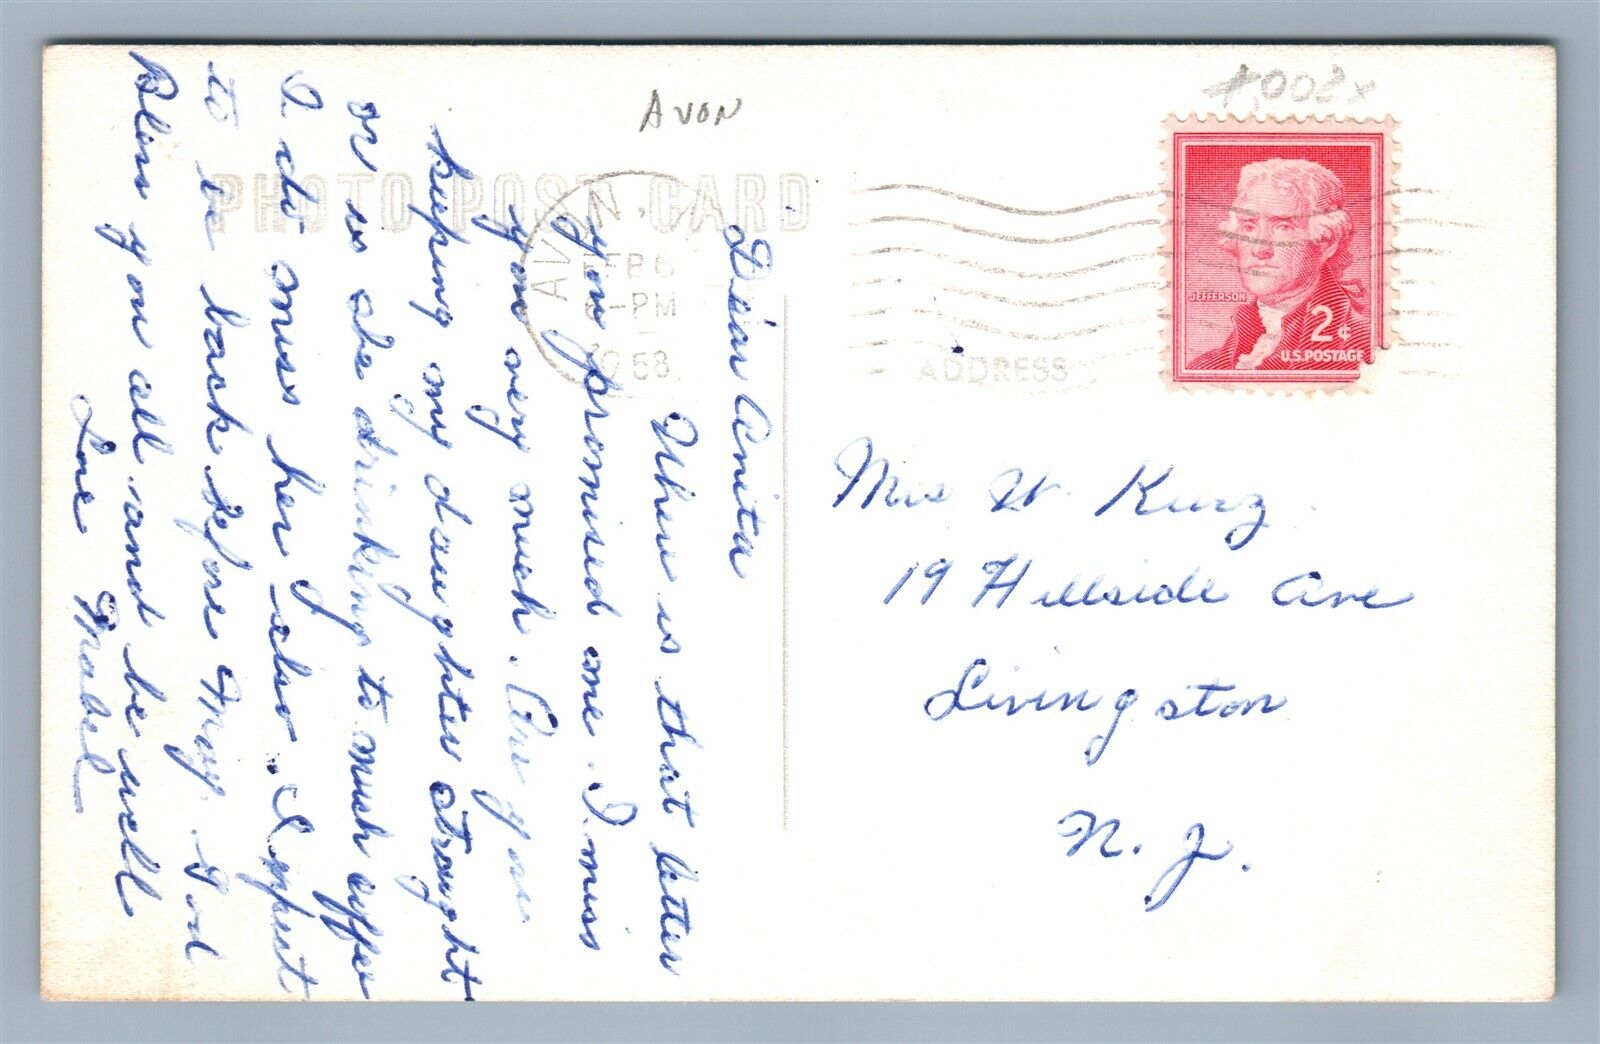 AVON
PHOTO POST CARD
AVON,
FEB 6
PM
1958
ADDRESS
JEFFERSON
2¢
U.S. POSTAGE
Dear Anita
Where is that letter
you promised me. I miss
you very much. Are you
keeping my daughter straight
or is she drinking to much coffee
I do miss her also. I expect
to be back before May. God
Bless you all and be well
Love Mabel
Mrs W. Kurz
19 Hillside Ave
Livingston
N. J.